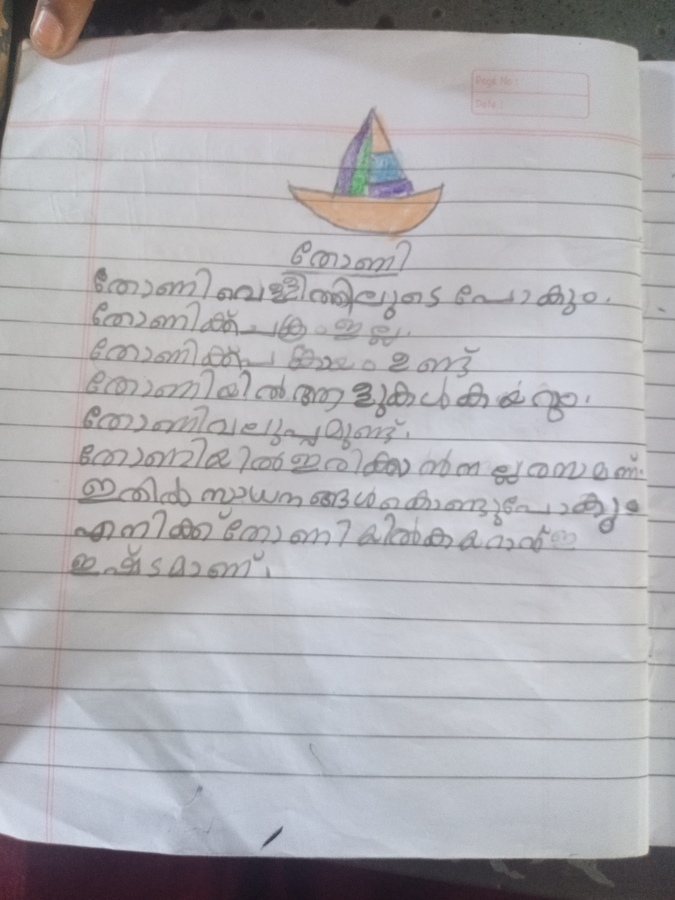 Page No :
Date :
തോണി
തോണി വെള്ളിത്തിലുടെ പോകും.
തോണിക്ക് ചക്രം ഇല്ല.
തോണിക്ക് ഉണ്ട്
തോണിയിൽ ആളുകൾ കയറും.
തോണി വലുപ്പമുണ്ട്.
തോണിയിൽ ഇരിക്കാൻ നല്ല രസമണ്.
ഇതിൽ സാധനങ്ങൾ കൊണ്ടുപോകും
എനിക്ക് തോണിയിൽ കയറാൻ
ഇഷ്ടമാണ്.